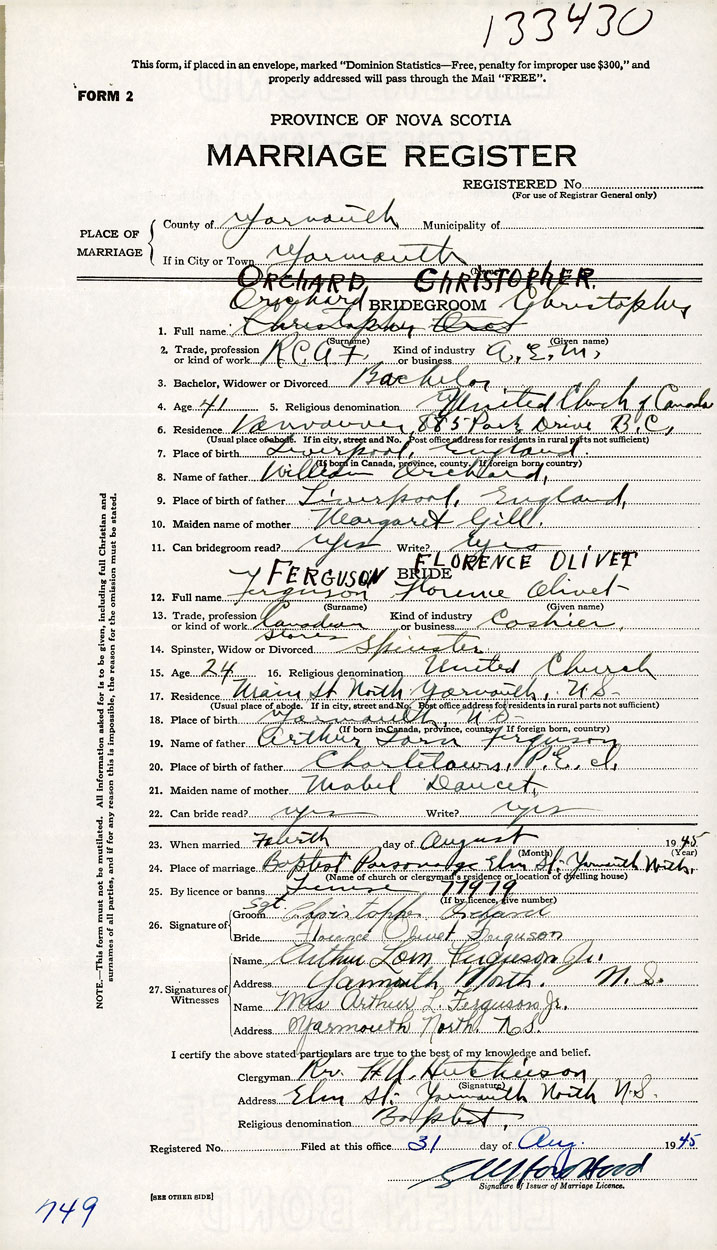 133430
This form, if placed in an envelope, marked "Dominion Statistics—Free, penalty for improper use $300," and
properly addressed will pass through the Mail "FREE".
FORM 2
PROVINCE OF NOVA SCOTIA
MARRIAGE REGISTER
REGISTERED No.
(For use of Registrar General only)
PLACE OF MARRIAGE
County of Yarmouth Municipality of
If in City or Town Yarmouth
(Name)
ORCHARD CHRISTOPHER.
Orchard BRIDEGROOM Christopher
1. Full name Christopher
(Surname) (Given name)
2. Trade, profession or kind of work R.C.A.F. Kind of industry or business A.E.M.
3. Bachelor, Widower or Divorced Bachelor
4. Age 41 5. Religious denomination United Church of Canada
6. Residence Vancouver, 885 Park Drive B.C.
(Usual place of abode. If in city, street and No. Post office address for residents in rural parts not sufficient)
7. Place of birth Liverpool, England.
(If born in Canada, province, county. If foreign born, country)
8. Name of father William Orchard,
9. Place of birth of father Liverpool, England,
10. Maiden name of mother Margaret Gill.
11. Can bridegroom read? Yes Write? Yes
FERGUSON BRIDE FLORENCE OLIVET
12. Full name Ferguson Florence Olivet
(Surname) (Given name)
13. Trade, profession or kind of work Canadian Stores Kind of industry or business Cashier,
14. Spinster, Widow or Divorced Spinster
15. Age 24 16. Religious denomination United Church
17. Residence Main St North Yarmouth, N.S.
(Usual place of abode. If in city, street and No. Post office address for residents in rural parts not sufficient)
18. Place of birth Yarmouth, N.S.
(If born in Canada, province, county. If foreign born, country)
19. Name of father Arthur Lorn Ferguson
20. Place of birth of father Charletown, P.E.I.
21. Maiden name of mother Mabel Daucet,
22. Can bride read? yes Write? yes
23. When married Fourth day of August 1945
(Month) (Year)
24. Place of marriage Baptist Parsonage Elm St. Yarmouth North.
(Name of church or clergyman's residence or location of dwelling house)
25. By licence or banns License 77979
(If by licence, give number)
26. Signature of Groom Sgt. Christopher Orchard
Bride Florence Olivet Ferguson
27. Signatures of Witnesses
Name Arthur Lorn Ferguson Jr.
Address Yarmouth North. N.S.
Name Mrs Arthur L. Ferguson Jr.
Address Yarmouth North. N.S.
I certify the above stated particulars are true to the best of my knowledge and belief.
Clergyman Rev. H.U. Hutchinson
(Signature)
Address Elm St. Yarmouth North N.S.
Religious denomination Baptist.
Registered No. Filed at this office 31 day of Aug. 1945
Signature of Issuer of Marriage Licence.
[SEE OTHER SIDE]
749
NOTE.—This form must not be mutilated. All information asked for is to be given, including full Christian and
surnames of all parties, and if for any reason this is impossible, the reason for the omission must be stated.